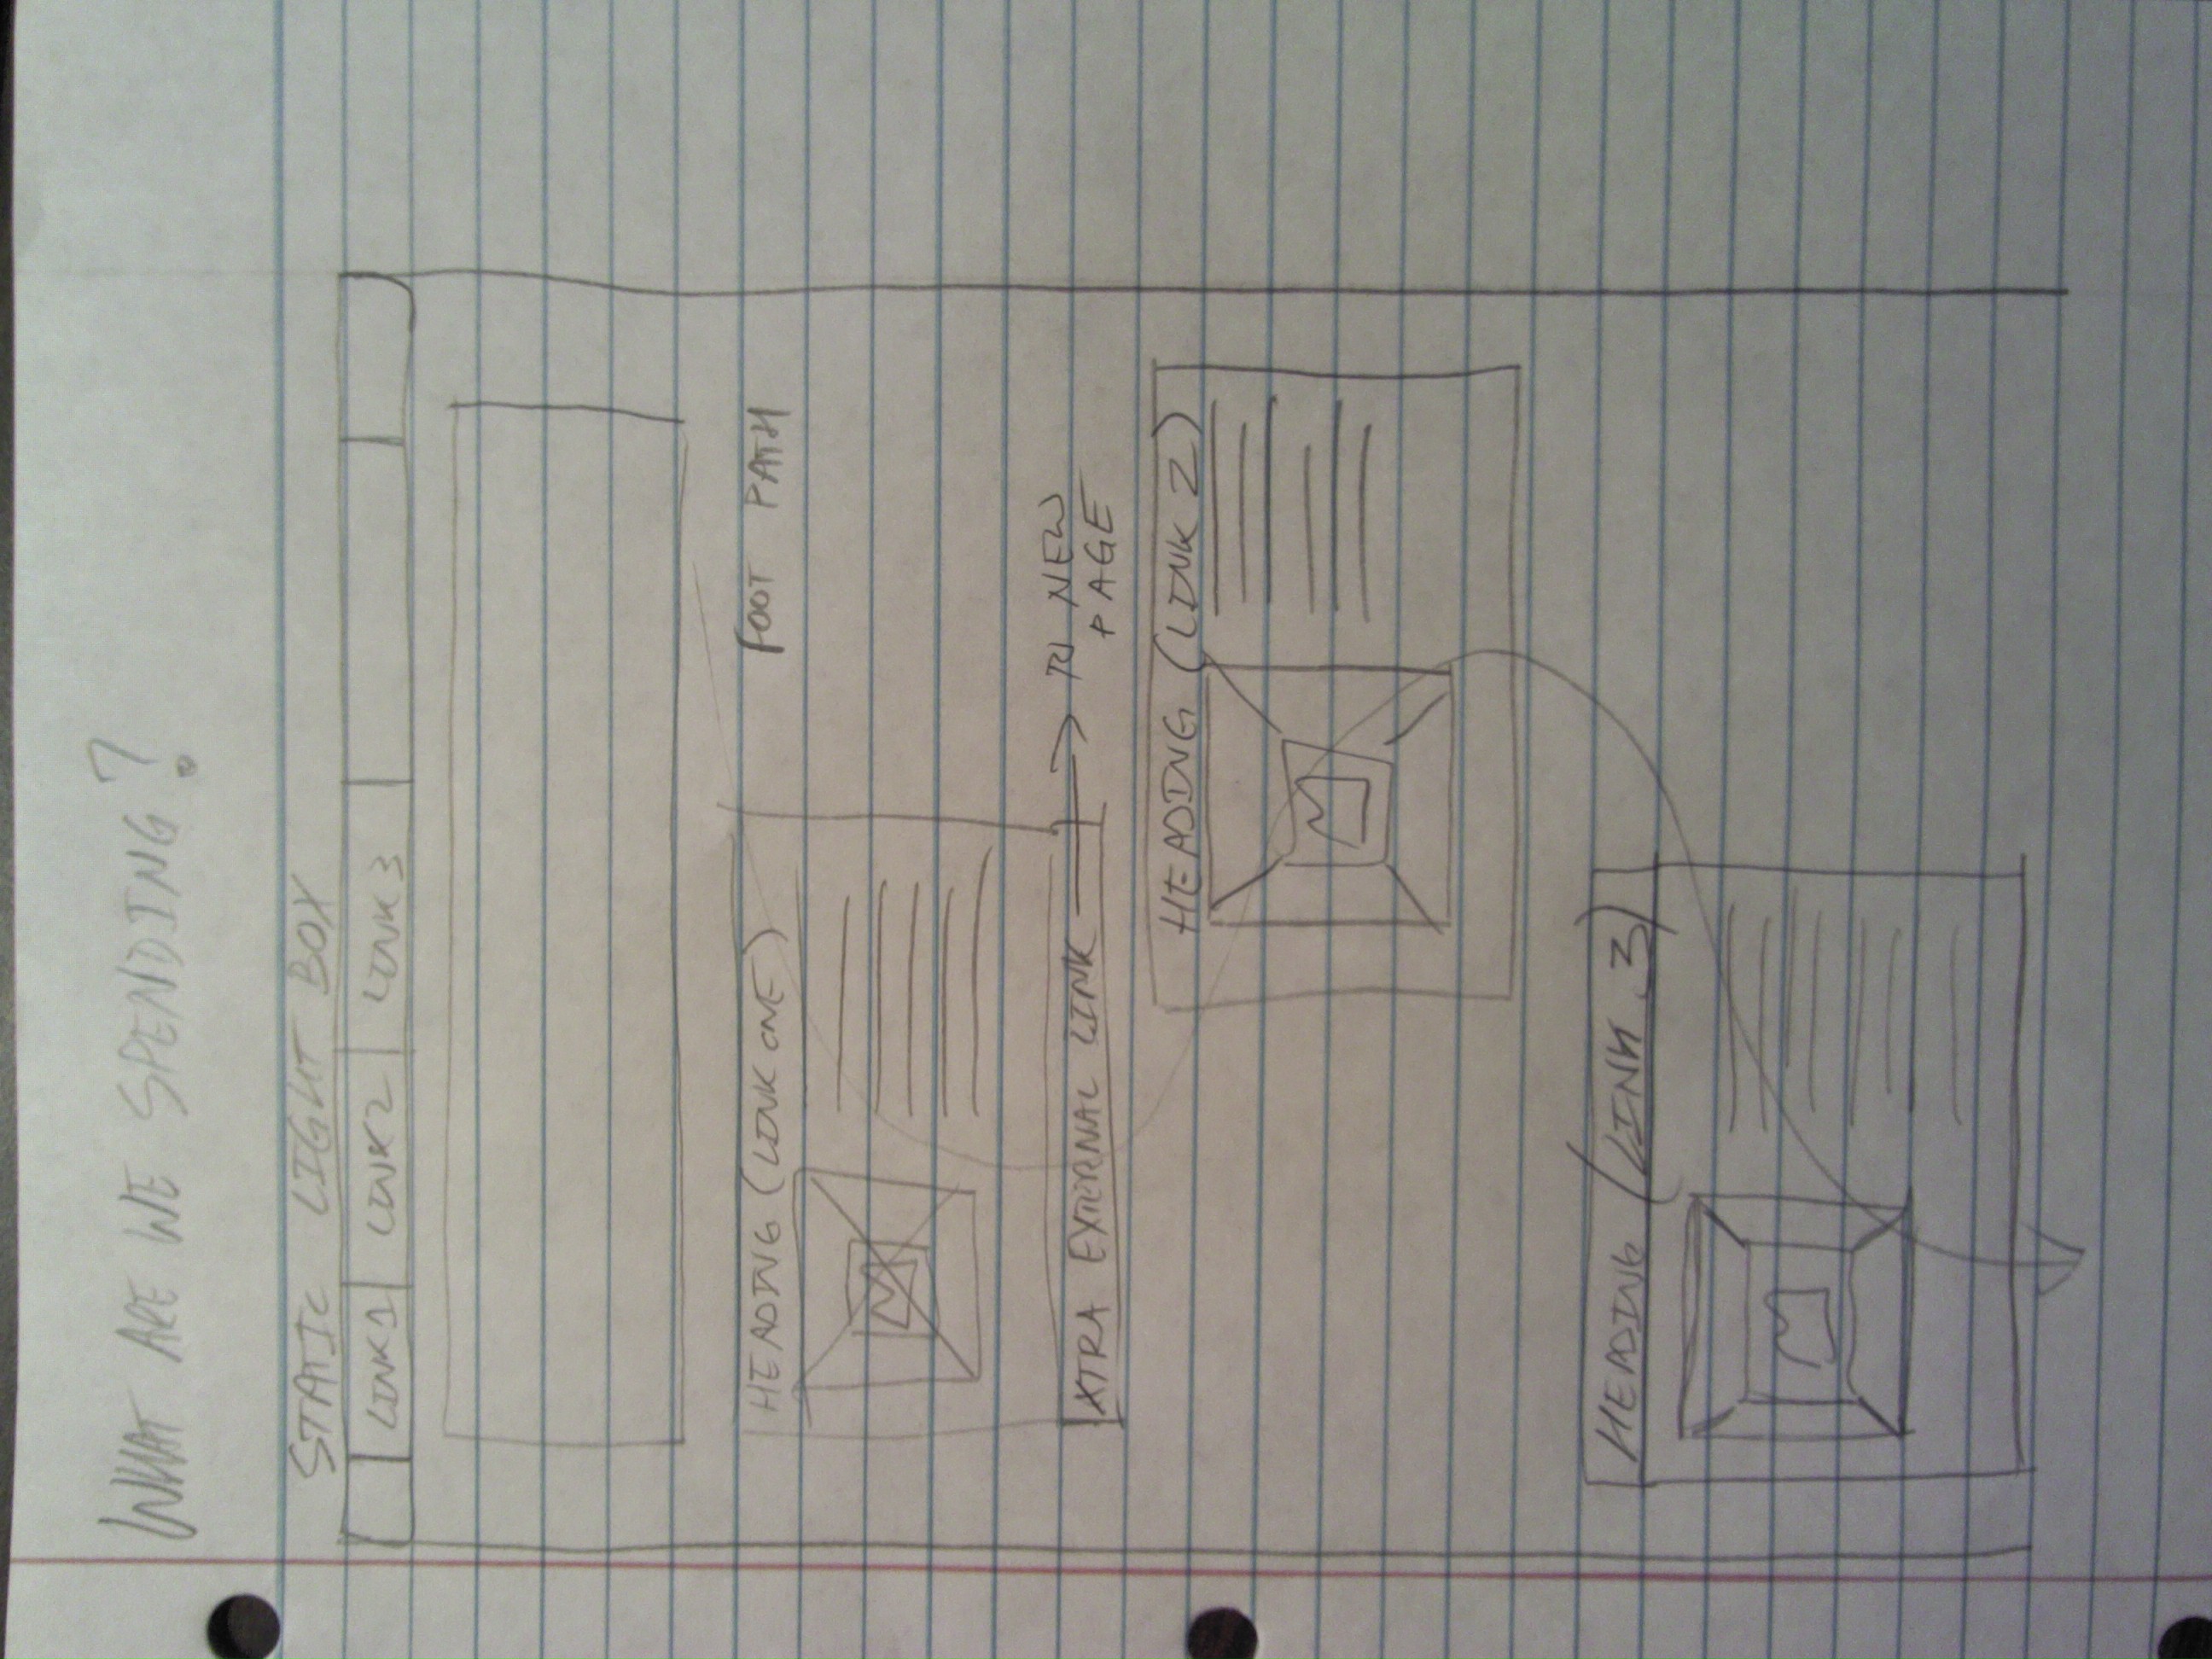 WHAT ARE WE SPENDING?
STATIC LIGHT BOX
LINK 1 LINK 2 LINK 3
HEADING (LINK ONE)
FOOT PATH
XTRA EXTERNAL LINK
TO NEW
PAGE
HEADING (LINK 2)
HEADING (LINK 3)